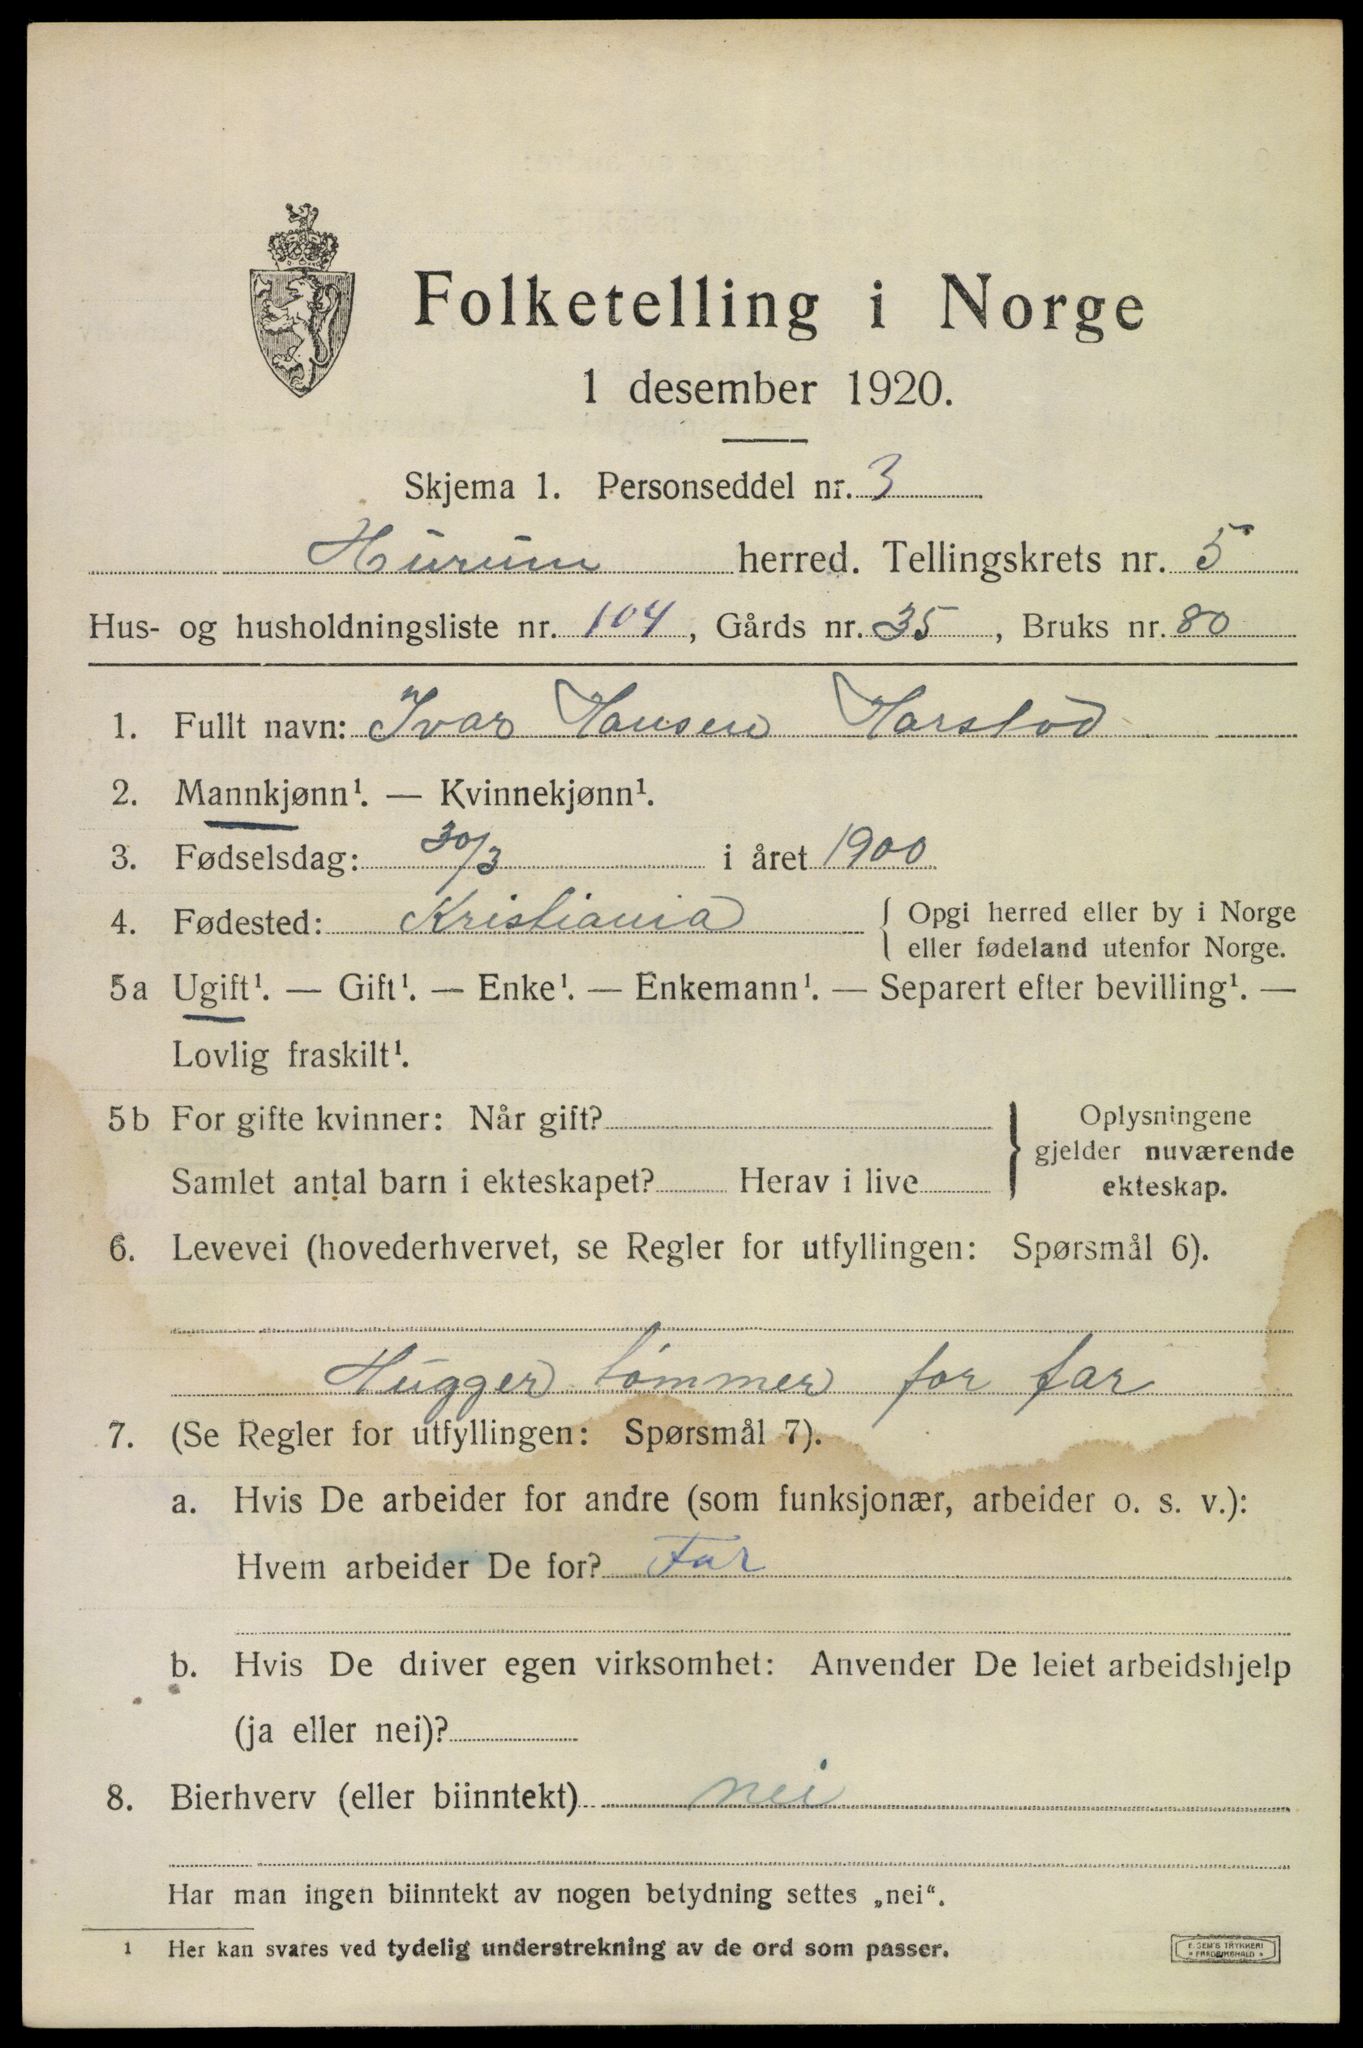 Folketelling i Norge
1 desember 1920.
Skjema 1. Personseddel nr. 3
Hurum herred. Tellingskrets nr. 5
Hus- og husholdningsliste nr. 104, Gårds nr. 35, Bruks nr. 80
1. Fullt navn: Ivar Hansen Harstod
2. Mannkjønn¹. — Kvinnekjønn¹.
3. Fødselsdag: 30/3 i året 1900
4. Fødested: Kristiania { Opgi herred eller by i Norge
eller fødeland utenfor Norge.
5a Ugift¹. — Gift¹. — Enke¹. — Enkemann¹. — Separert efter bevilling¹. —
Lovlig fraskilt¹.
5b For gifte kvinner: Når gift?
Samlet antal barn i ekteskapet? Herav i live
} Oplysningene
gjelder nuværende
ekteskap.
6. Levevei (hovederhvervet, se Regler for utfyllingen: Spørsmål 6).
Hugger tømmer for far
7. (Se Regler for utfyllingen: Spørsmål 7).
a. Hvis De arbeider for andre (som funksjonær, arbeider o. s. v.):
Hvem arbeider De for? Far
b. Hvis De driver egen virksomhet: Anvender De leiet arbeidshjelp
(ja eller nei)?
8. Bierhverv (eller biinntekt) nei
Har man ingen biinntekt av nogen betydning settes „nei“.
1 Her kan svares ved tydelig understrekning av de ord som passer.
E. SEM'S TRYKKERI
FREDRIKSHALD